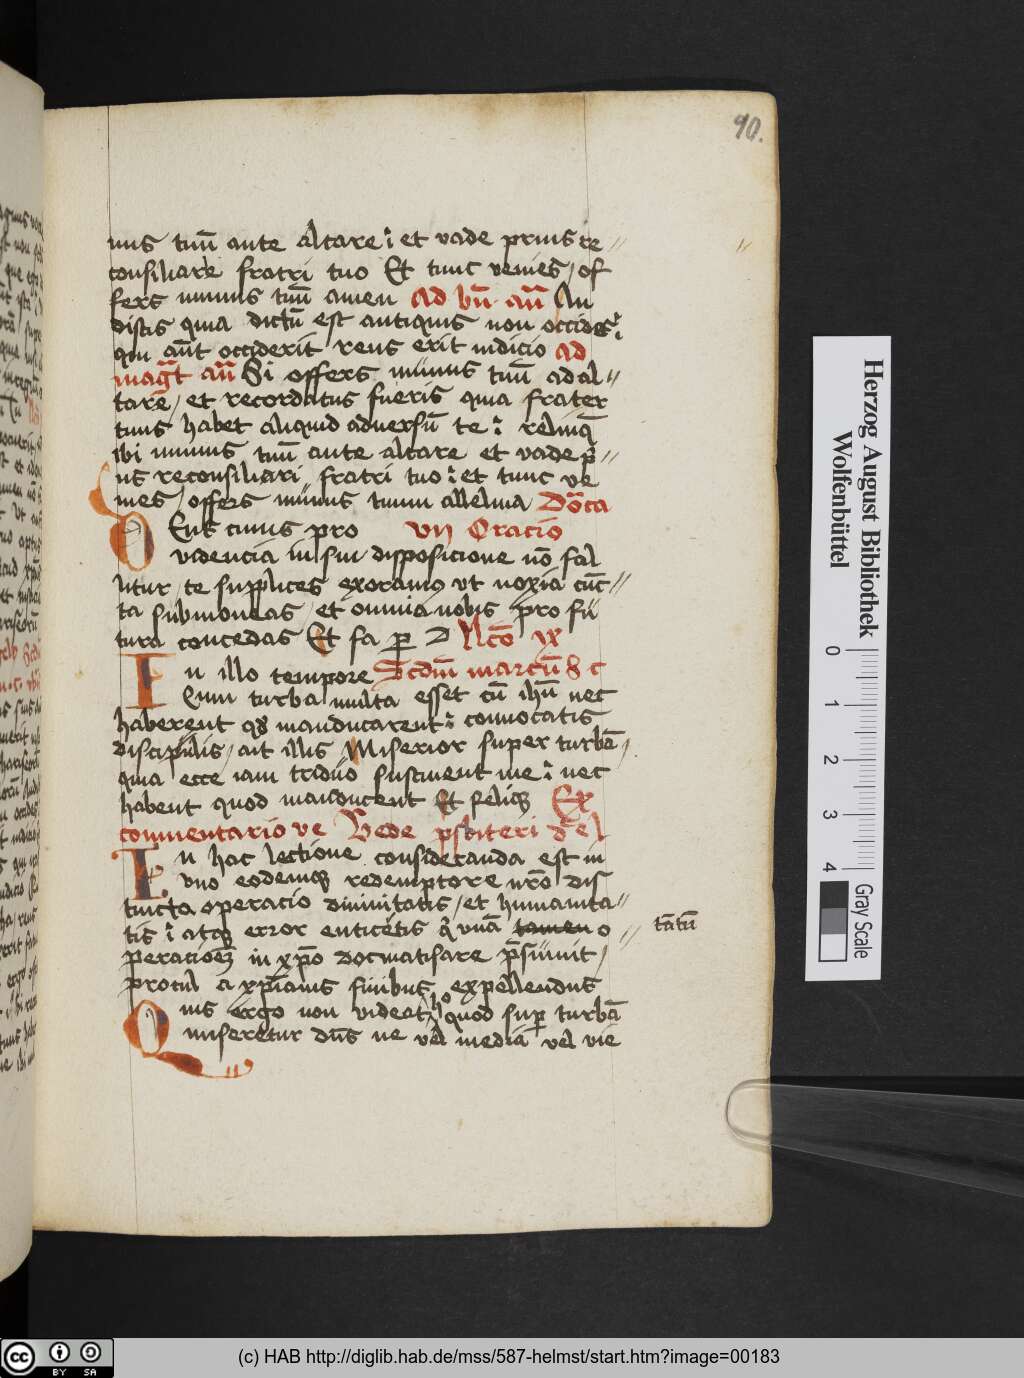 90.
nus tuū ante altare : et vade prius re //
consiliare fratri tuo Et tunc venies / of
fers munus tuū amen Ad bn̄ an̄ Au
distis quia dictū est antiquis non occides :
qui aūt occiderit reus erit iudicio Ad
mag̅t an̄ Si offers munus tuū ad al //
tare / et recordatus fueris quia frater
tuus habet aliquid aduersū te : relinq̄
ibi munus tuū ante altare et vade p̄ //
us reconsiliari fratri tuo : et tunc ve
nies / offers munus tuum alleluia Dōca
DEus cuius pro vij Oracio
videncia in sui disposicione nō fal
litur / te supplices exoramus vt noxia cūc //
ta submoueas / et omnia nobis pro fu
tura concedas Et fa p̄ D Lc̄o ix
In illo tempore Scdm̄ marcū S c
Cum turba multa esset cū ihū nec
haberent qd̄ manducarent : conuocatis
discipulis / ait illis Miserior super turbā /
quia ecce iam triduo sustinent me : nec
habent quod manducent Et reliqȝ Ex
commentario ve Bede psbiteri de el
In hac lectione consideranda est in
vno eodemqȝ redemptore nr̄o dis
tincta operacio diuinitatis / et humanita //
tis : atqȝ error euticetis q̄ vnā tamen o // tātū
peracionēȝ in xp̄o docmatisare p̄sumit /
procul a xp̄ianis finibus expellendus
Quis ergo non videat ho quod sup̄ turbā
miseretur dn̄s ne vel mediā vel vie
Herzog August Bibliothek
Wolfenbüttel
0 1 2 3 4
Gray Scale
cc BY SA
(c) HAB http://diglib.hab.de/mss/587-helmst/start.htm?image=00183